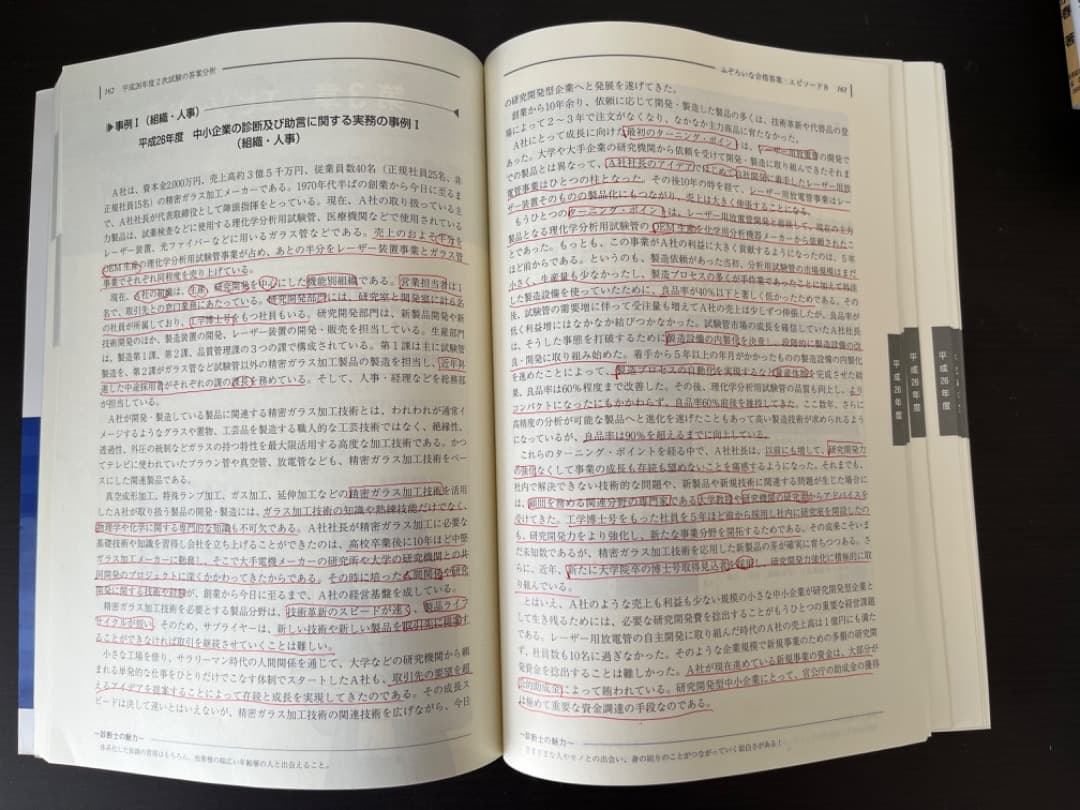 162 平成26年度2次試験の答案分析
▶事例Ⅰ（組織・人事）
平成26年度 中小企業の診断及び助言に関する実務の事例Ⅰ
（組織・人事）
A社は、資本金2,000万円、売上高約3億5千万円、従業員数40名（正規社員25名、非
正規社員15名）の精密ガラス加工メーカーである。1970年代半ばの創業から今日に至るま
で、A社社長が代表取締役として陣頭指揮をとっている。現在、A社の取り扱っている主
力製品は、試薬検査などに使用する理化学分析用試験管、医療機関などで使用されている
レーザー装置、光ファイバーなどに用いるガラス管などである。売上のおよそ半分を
OEM生産の理化学分析用試験管事業が占め、あとの半分をレーザー装置事業とガラス管
事業でそれぞれ同程度を売り上げている。
現在、A社の組織は、生産、研究開発を中心にした機能別組織である。営業担当者は1
名で、取引先との窓口業務にあたっている。研究開発部門には、研究室と開発室に計6名
の社員が所属しており、工学博士号をもつ社員もいる。研究開発部門は、新製品開発や新
技術開発のほか、製造装置の開発、レーザー装置の開発・販売を担当している。生産部門
は、製造第1課、第2課、品質管理課の3つの課で構成されている。第1課は主に試験管
製造を、第2課がガラス管など試験管以外の精密ガラス加工製品の製造を担当し、近年昇
進した中途採用者がそれぞれの課の課長を務めている。そして、人事・経理などを総務部
が担当している。
A社が開発・製造している製品に関連する精密ガラス加工技術とは、われわれが通常イ
メージするようなグラスや置物、工芸品を製造する職人的な工芸技術ではなく、絶縁性、
透過性、外圧の統制などガラスの持つ特性を最大限活用する高度な加工技術である。かつ
てテレビに使われていたブラウン管や真空管、放電管なども、精密ガラス加工技術をベー
スにした関連製品である。
真空成形加工、特殊ランプ加工、ガス加工、延伸加工などの精密ガラス加工技術を活用
したA社が取り扱う製品の開発・製造には、ガラス加工技術の知識や熟練技能だけでなく、
物理学や化学に関する専門的な知識も不可欠である。A社社長が精密ガラス加工に必要な
基礎技術や知識を習得し会社を立ち上げることができたのは、高校卒業後に10年ほど中堅
ガラス加工メーカーに勤務し、そこで大手電機メーカーの研究所や大学の研究機関との共
同開発のプロジェクトに深くかかわってきたからである。その時に培った人間関係や研究
開発に関する技術や経験が、創業から今日に至るまで、A社の経営基盤を成している。
精密ガラス加工技術を必要とする製品分野は、技術革新のスピードが速く、製品ライフ
サイクルが短い。そのため、サプライヤーは、新しい技術や新しい製品を取引先に提案す
ることができなければ取引を継続させていくことは難しい。
小さな工場を借り、サラリーマン時代の人間関係を通じて、大学などの研究機関から頼
まれる単発的な仕事をひとりだけでこなす体制でスタートしたA社も、取引先の要望を超
えるアイデアを提案することによって存続と成長を実現してきたのである。その成長ス
ピードは決して速いとはいえないが、精密ガラス加工技術の関連技術を広げながら、今日
～診断士の魅力～
体系化した知識の習得はもちろん、他業種の幅広い年齢層の人と出会えること。
ふぞろいな合格答案：エピソード8 163
の研究開発型企業へと発展を遂げてきた。
創業から10年余り、依頼に応じて開発・製造した製品の多くは、技術革新や代替品の登
場によって2～3年で注文がなくなり、なかなか主力商品に育たなかった。
A社にとって成長に向けた最初のターニング・ポイントは、レーザー用放電管の開発で
あった。大学や大手企業の研究機関から依頼を受けて開発・製造に取り組んできたそれま
での製品とは異なって、A社社長のアイデアではじめて自社開発に着手したレーザー用放
電管事業はひとつの柱となった。その後10年の時を経て、レーザー用放電管事業はレー
ザー装置そのものの製品化にもつながり、売上は大きく伸張することになる。
もうひとつのターニング・ポイントは、レーザー用放電管開発と前後して、現在の主力
製品となる理化学分析用試験管のOEM生産を化学用分析機器メーカーから依頼されたこ
とであった。もっとも、この事業がA社の利益に大きく貢献するようになったのは、5年
ほど前からである。というのも、製造依頼があった当初、分析用試験管の市場規模はまだ
小さく、生産量も少なかったし、製造プロセスの多くが手作業であったことに加えて特注
した製造設備を使っていたために、良品率が40％以下と著しく低かったためである。その
後、試験管の需要増に伴って受注量も増えてA社の売上は少しずつ伸張したが、良品率が
低く利益増にはなかなか結びつかなかった。試験管市場の成長を確信していたA社社長
は、そうした事態を打破するために製造設備の内製化を決意し、段階的に製造設備の改
良・開発に取り組み始めた。着手から5年以上の年月がかかったものの製造設備の内製化
を進めたことによって、製造プロセスの自動化を実現するなど量産体制を完成させた結
果、良品率は60％程度まで改善した。その後、理化学分析用試験管の品質も向上し、より
コンパクトになったにもかかわらず、良品率60％前後を維持してきた。ここ数年、さらに
高精度の分析が可能な製品へと進化を遂げたこともあって高い製造技術が求められるよう
になっているが、良品率は90％を超えるまでに向上している。
これらのターニング・ポイントを経る中で、A社社長は、以前にも増して、研究開発力
の強化なくして事業の成長も存続も望めないことを痛感するようになった。それまでも、
社内で解決できない技術的な問題や、新製品や新規技術に関する問題が生じた場合に
は、顧問を務める関連分野の専門家である大学教授や研究機関の研究者からアドバイスを
受けてきた。工学博士号をもった社員を5年ほど前から採用し社内に研究室を開設したの
も、研究開発力をより強化し、新たな事業分野を開拓するためである。その成果こそいま
だ未知数であるが、精密ガラス加工技術を応用した新製品の芽が確実に育ちつつある。さ
らに、近年、新たに大学院卒の博士号取得見込者を採用し、研究開発力強化に積極的に取
り組んでいる。
とはいえ、A社のような売上も利益も少ない規模の小さな中小企業が研究開発型企業と
して生き残るためには、必要な研究開発費を捻出することがもうひとつの重要な経営課題
である。レーザー用放電管の自主開発に取り組んだ時代のA社の売上高は1億円にも満た
ず、社員数も10名に過ぎなかった。そのような企業規模で新規事業のための多額の研究開
発資金を捻出することは難しかった。A社が現在進めている新規事業の資金は、大部分が
公的助成金によって賄われている。研究開発型中小企業にとって、官公庁の助成金の獲得
は極めて重要な資金調達の手段なのである。
～診断士の魅力～
さまざまな人やモノとの出会い。身の回りのことがつながっていく面白さがある！
平成26年度
平成26年度
平成26年度